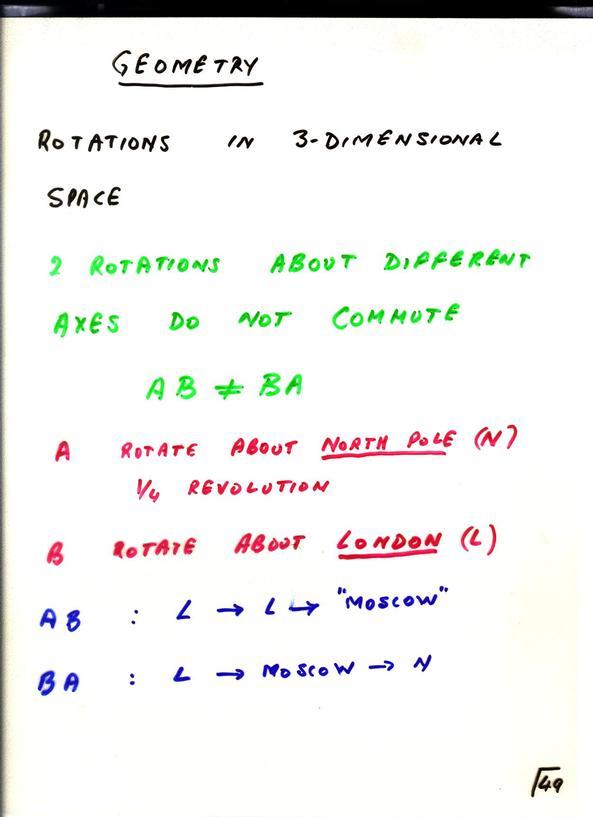 GEOMETRY
ROTATIONS IN 3-DIMENSIONAL
SPACE
2 ROTATIONS ABOUT DIFFERENT
AXES DO NOT COMMUTE
AB ≠ BA
A ROTATE ABOUT NORTH POLE (N)
1/4 REVOLUTION
B ROTATE ABOUT LONDON (L)
AB : L → L → "MOSCOW"
BA : L → MOSCOW → N
√49